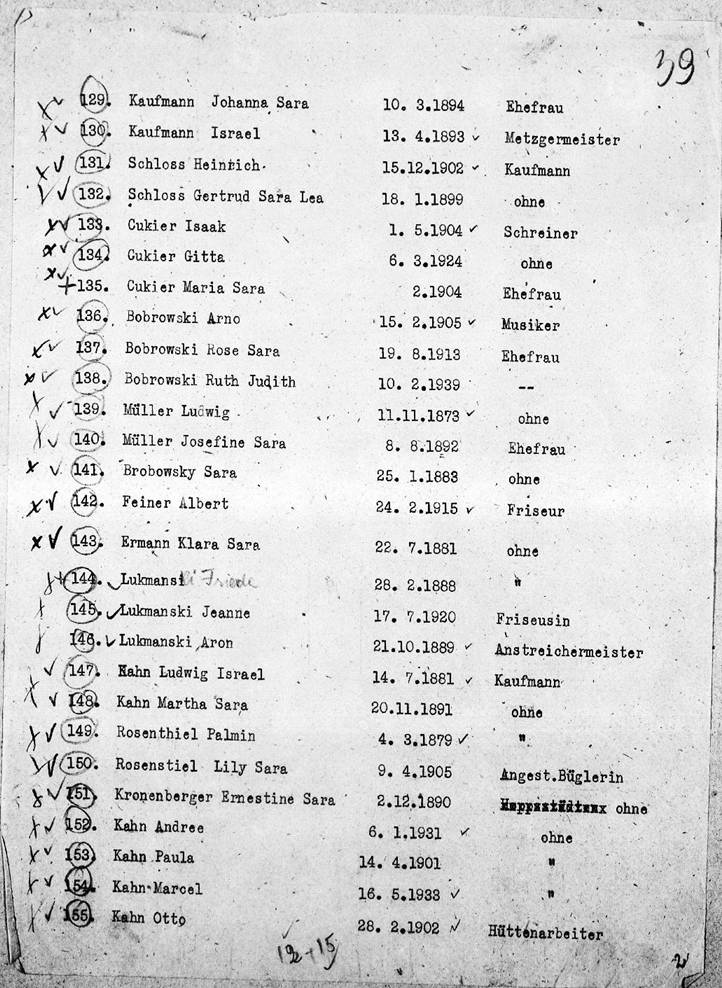 39
129. Kaufmann Johanna Sara 10. 3.1894 Ehefrau
130. Kaufmann Israel 13. 4.1893 Metzgermeister
131. Schloss Heinrich 15.12.1902 Kaufmann
132. Schloss Gertrud Sara Lea 18. 1.1899 ohne
133. Cukier Isaak 1. 5.1904 Schreiner
134. Cukier Gitta 6. 3.1924 ohne
135. Cukier Maria Sara 2.1904 Ehefrau
136. Bobrowski Arno 15. 2.1905 Musiker
137. Bobrowski Rose Sara 19. 8.1913 Ehefrau
138. Bobrowski Ruth Judith 10. 2.1939 --
139. Müller Ludwig 11.11.1873 ohne
140. Müller Josefine Sara 8. 8.1892 Ehefrau
141. Brobowsky Sara 25. 1.1883 ohne
142. Feiner Albert 24. 2.1915 Friseur
143. Ermann Klara Sara 22. 7.1881 ohne
144. Lukmansi Friede 28. 2.1888 "
145. Lukmanski Jeanne 17. 7.1920 Friseusin
146. Lukmanski Aron 21.10.1889 Anstreichermeister
147. Kahn Ludwig Israel 14. 7.1881 Kaufmann
148. Kahn Martha Sara 20.11.1891 ohne
149. Rosenthiel Palmin 4. 3.1879 "
150. Rosenstiel Lily Sara 9. 4.1905 Angest.Büglerin
151. Kronenberger Ernestine Sara 2.12.1890 ohne
152. Kahn Andree 6. 1.1931 ohne
153. Kahn Paula 14. 4.1901 "
154. Kahn Marcel 16. 5.1933 "
155. Kahn Otto 28. 2.1902 Hüttenarbeiter
12+15